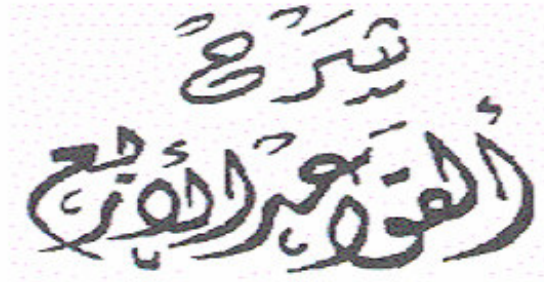 شرح
القواعد الأربع